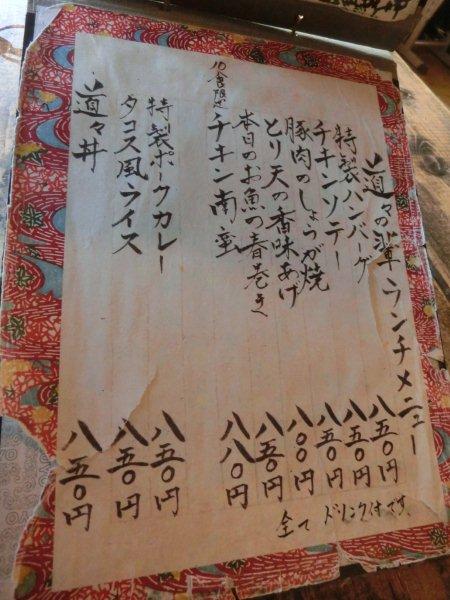 道々の輩ランチメニュー
特製ハンバーグ 八五〇円
チキンソテー 八五〇円
豚肉のしょうが焼 八五〇円
とり天の香味あげ 八〇〇円
本日のお魚の春巻き 八五〇円
10食限定 チキン南蛮 八八〇円
特製ポークカレー 八五〇円
タコス風ライス 八五〇円
道々丼 八五〇円
全て ドリンク付です。